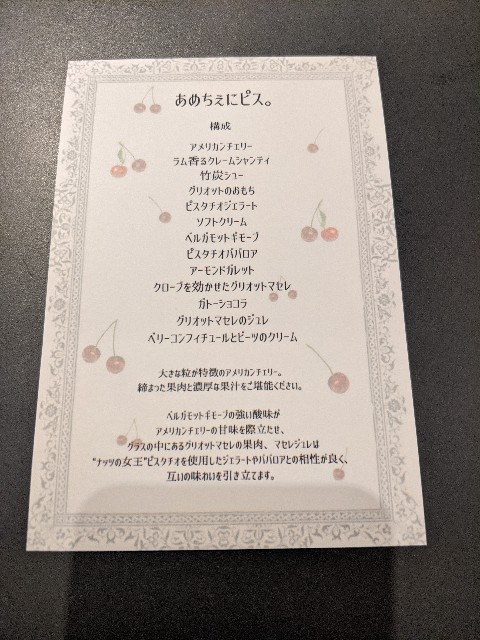 あめちぇにピス。
構成
アメリカンチェリー
ラム香るクレームシャンティ
竹炭シュー
グリオットのおもち
ピスタチオジェラート
ソフトクリーム
ベルガモットギモーブ
ピスタチオババロア
アーモンドガレット
クローブを効かせたグリオットマセレ
ガトーショコラ
グリオットマセレのジュレ
ベリーコンフィチュールとビーツのクリーム
大きな粒が特徴のアメリカンチェリー。
締まった果肉と濃厚な果汁をご堪能ください。
ベルガモットギモーブの強い酸味が
アメリカンチェリーの甘味を際立たせ、
グラスの中にあるグリオットマセレの果肉、マセレジュレは
"ナッツの女王"ピスタチオを使用したジェラートやババロアとの相性が良く、
互いの味わいを引き立てます。